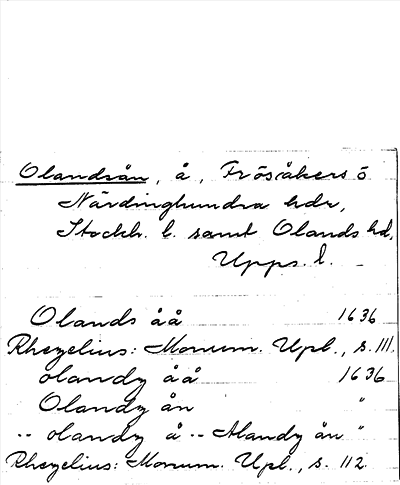 Olandsån, å, Frösåkers o
Närdinghundra hdr,
Stockh. l. samt Olands hd,
Upps. l.
Olands åå 1636
Rhezelius: Monum. Upl., s. 111.
olandz åå 1636
Olandz ån "
-- olandz å -- Alandz ån "
Rhezelius: Monum. Upl., s. 112.